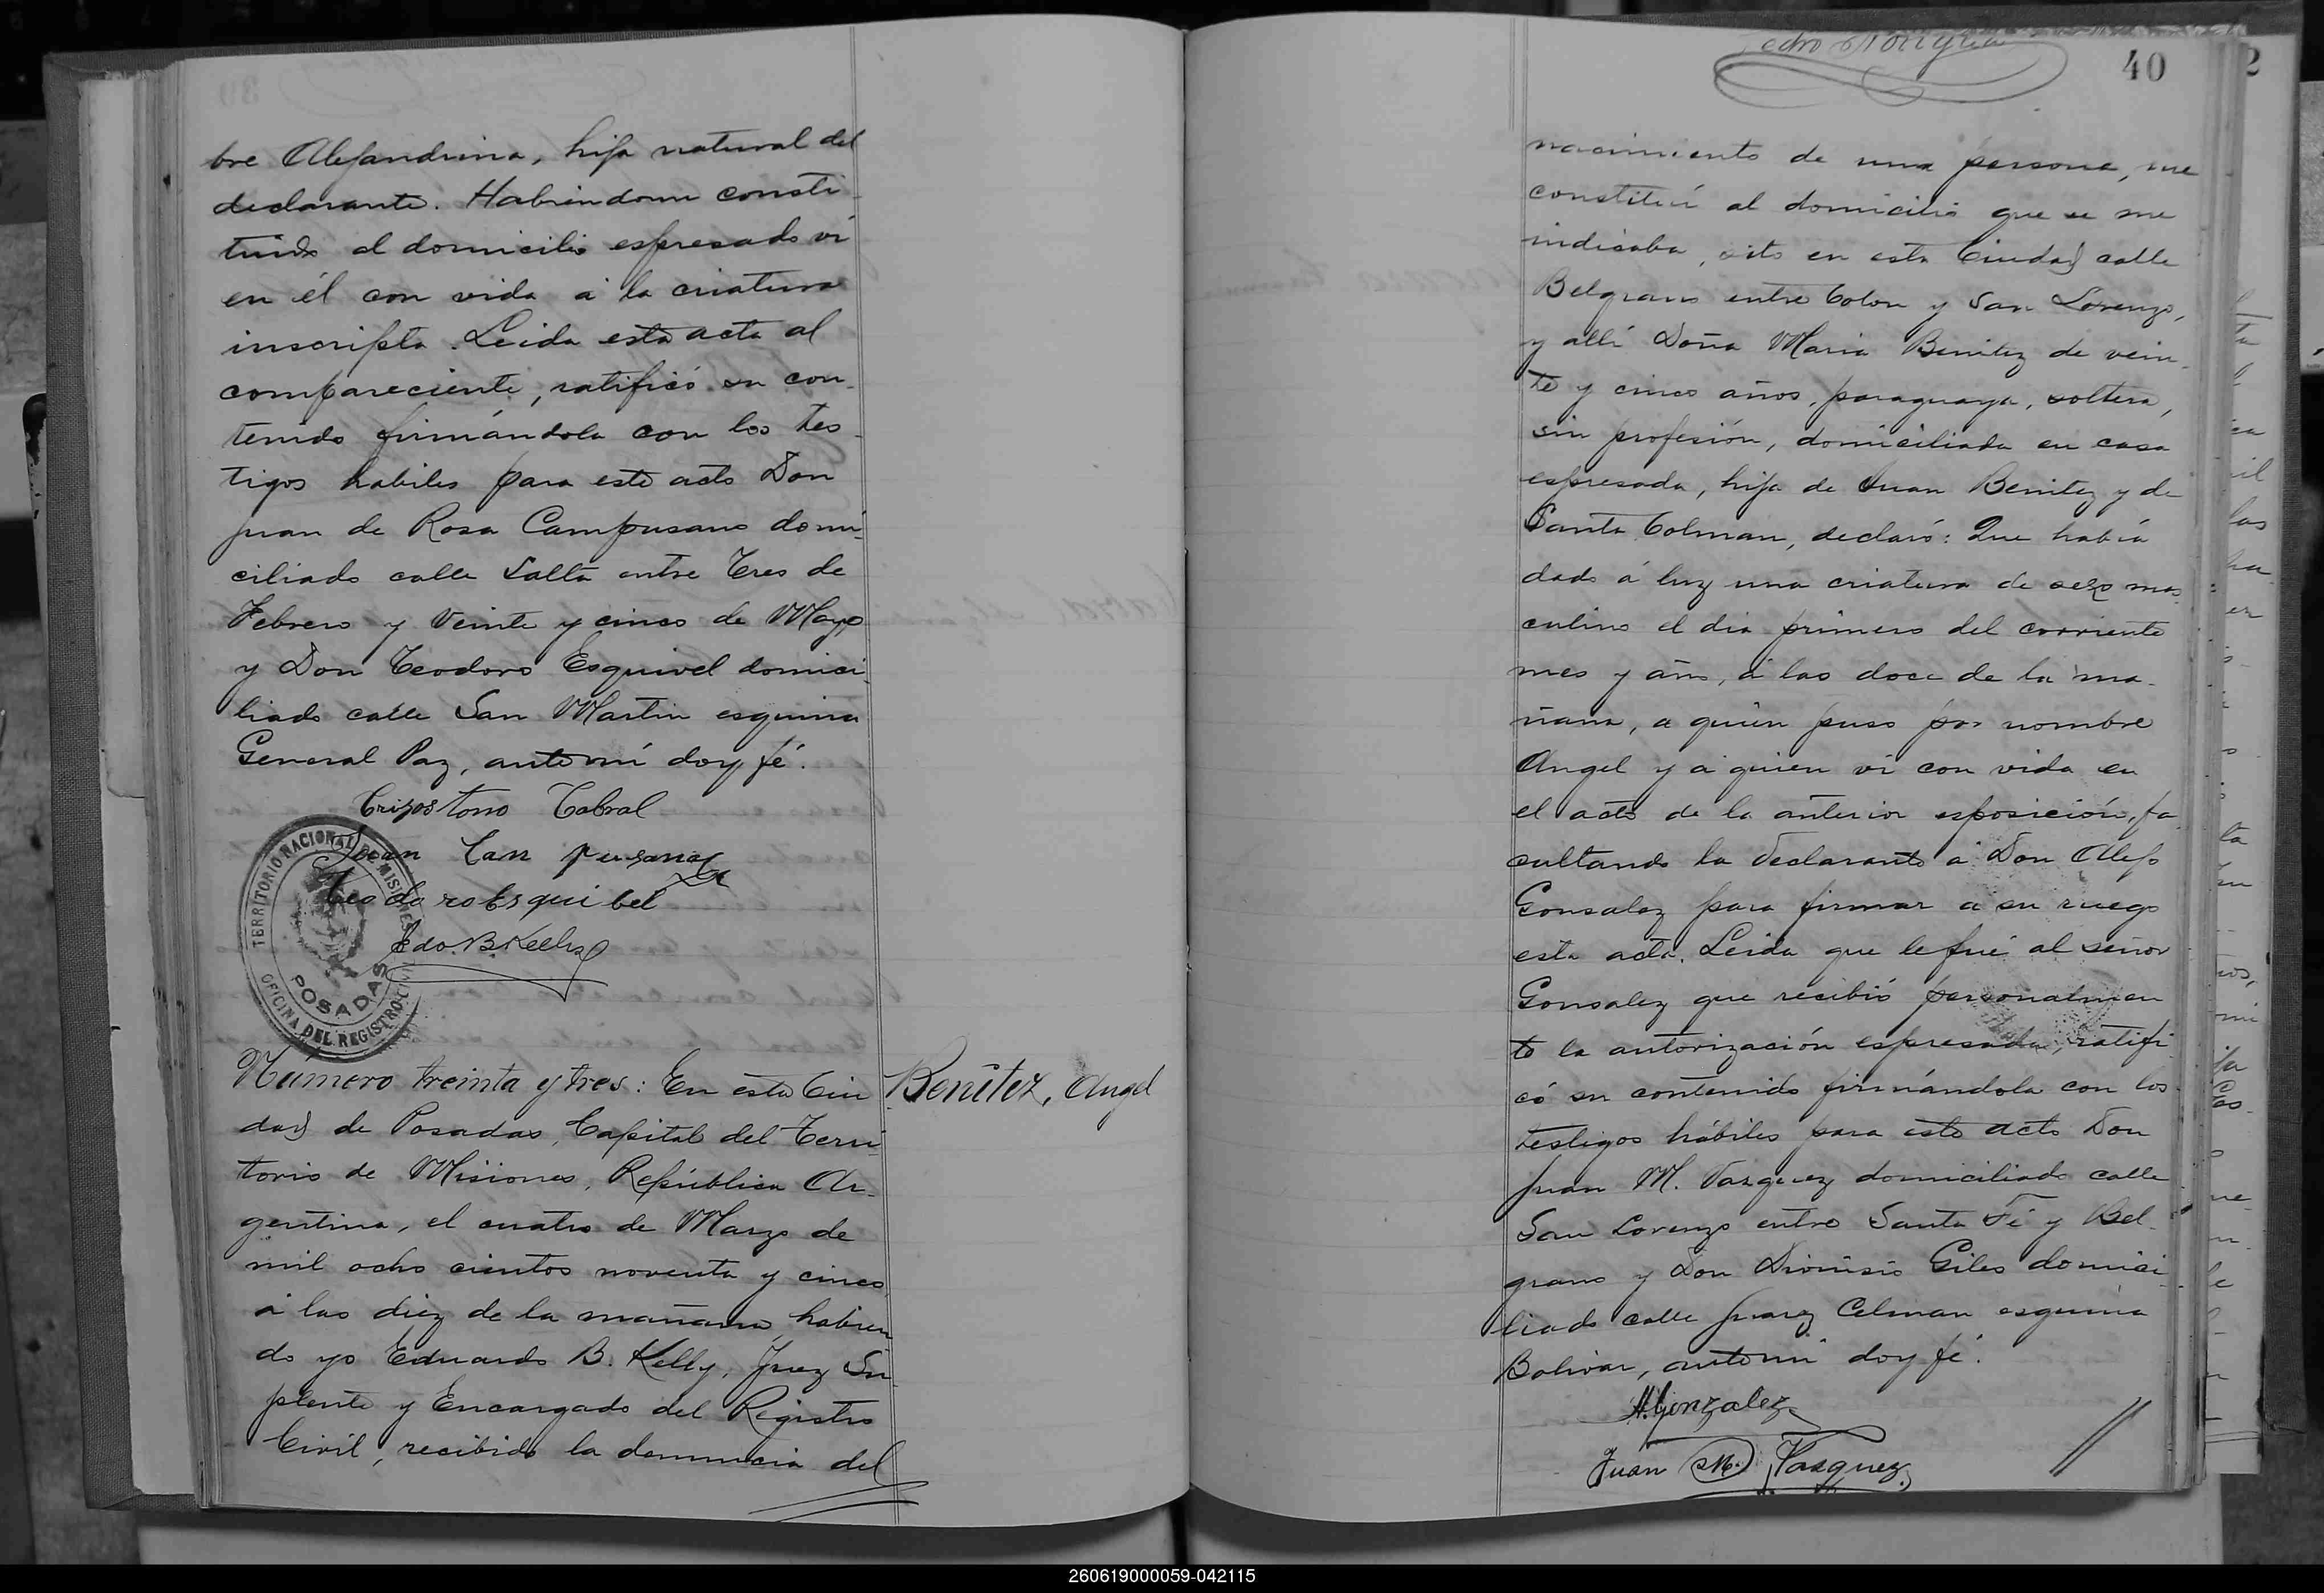 bre Alejandrina, hija natural del
declarante. Habiendome consti
tuido al domicilio espresado vi
en él con vida á la criatura
inscripta. Leida esta acta al
compareciente, ratificó su con-
tenido firmándola con los tes-
tigos habiles para este acto Don
Juan de Rosa Campusano domi-
ciliado calle Salta entre Tres de
Febrero y Veinte y cinco de Mayo
y Don Teodoro Esquivel domici-
liado calle San Martin esquina
General Paz, ante mí doy fé.
Crizostomo Cabral
Juan Canpusano
teodoro Esquibel
Edo. B. Kelly
TERRITORIO NACIONAL DE MISIONES
POSADAS
OFICINA DEL REGISTRO CIVIL
Número treinta y tres: En esta Ciu
dad de Posadas, Capital del Terri-
torio de Misiones, República Ar-
gentina, el cuatro de Marzo de
mil ocho cientos noventa y cinco
á las diez de la mañana, habien
do yo Eduardo B. Kelly, Juez Su-
plente y Encargado del Registro
Civil, recibido la denuncia del
Benitez, Angel
40
nacimiento de una persona, me
constituí al domicilio que se me
indicaba, sito en esta Ciudad calle
Belgrano entre Colon y San Lorenzo,
y allí Doña Maria Benitez de vein-
te y cinco años, paraguaya, soltera,
sin profesión, domiciliada en casa
espresada, hija de Juan Benitez y de
Santa Colman, declaró: Que había
dado á luz una criatura de sexo mas-
culino el dia primero del corriente
mes y año, á las doce de la ma-
ñana, a quien puso por nombre
Angel y á quien vi con vida en
el acto de la anterior esposición, fa-
cultando la declarante á Don Alejo
Gonsalez para firmar a su ruego
esta acta. Leida que le fué al señor
Gonsalez que recibió personalmen
te la autorización espresada, ratifi-
có su contenido firmándola con los
testigos hábiles para este acto Don
Juan M. Vasquez domiciliado calle
San Lorenzo entre Santa Fé y Bel-
grano y Don Dionisio Giles domici-
liado calle Juarez Celman esquina
Bolivar, ante mí doy fé.
A. Gonzalez
Juan M. Vasquez
260619000059-042115